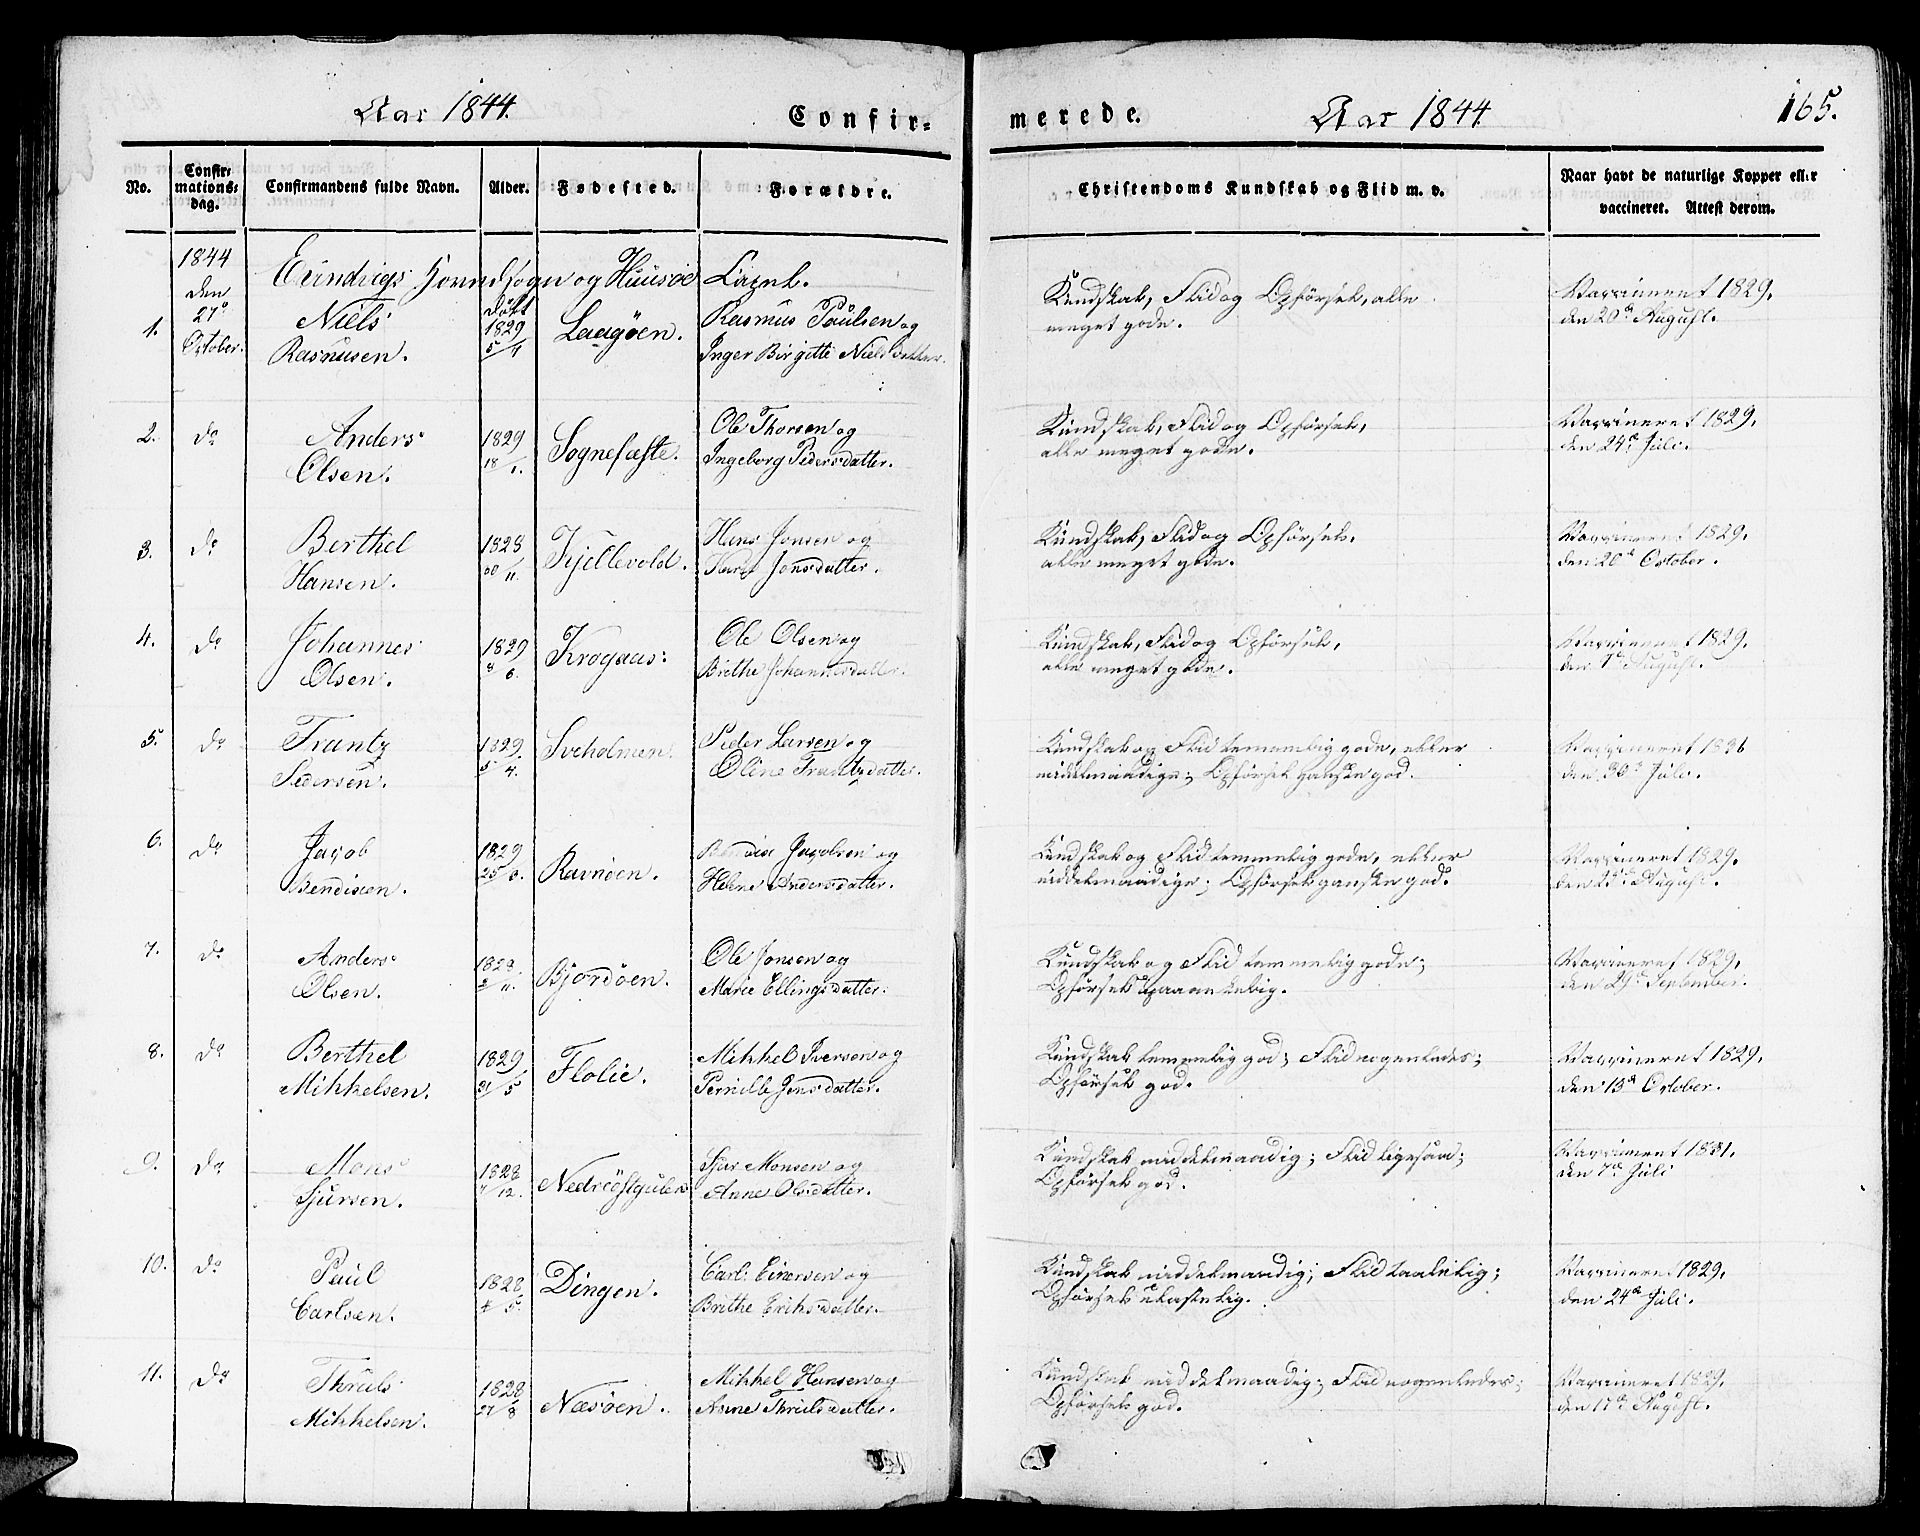 Aar 1844. Confir-
merede. Aar 1844 165.
No. Confir-mations-dag. Confirmandens fulde Navn. Alder. Fødested. Forældre. Christendoms Kundskab og Flid m. v. Naar havt de naturlige Kopper eller
vaccineret. Attest derom.
1844 den 27de October.
Eivindvigs Hovedsogn og Huusøe
1. Niels Rasmusen. døbt 1829 5/4 Laagøen. Rasmus Paulsen og
Inger Birgitte Nielsdatter.
Kundskab, Flid og Opførsel, alle
meget gode.
Vaccineret 1829,
den 20de August.
2. do Anders Olsen. 1829 18/1. Sognefæste. Ole Thorsen og
Ingeborg Pedersdatter.
Kundskab, Flid og Opførsel,
alle meget gode.
Vaccineret 1829,
den 24de Juli.
3. do Berthel Hansen. 1828 /11. Kjellevold. Hans Jonsen og
Jonsdatter.
Kundskab, Flid og Opførsel,
alle meget gode.
Vaccineret 1829,
den 20de October.
4. do Johannes Olsen. 1829 8/6. Krogaas. Ole Olsen og
Brithe Johannesdatter.
Kundskab, Flid og Opførsel,
alle meget gode.
Vaccineret 1829,
den 7de August.
5. do Frantz Pedersen. 1829 5/4. Sveholmen. Peder Larsen og
Oline Frantzdatter.
Kundskab og Flid temmelig gode, eller
middelmaadige; Opførsel ganske god.
Vaccineret 1836
den 30te Juli.
6. do Jacob Bendixen. 1829 25/6. Ravnøen. Bendix Jacobsen og
Helene Andersdatter.
Kundskab og Flid temmelig gode, eller
middelmaadige; Opførsel ganske god.
Vaccineret 1829,
den 25de August.
7. do Anders Olsen. 1829. Bjordøen. Ole Jonsen og
Marie Ellingsdatter.
Kundskab og Flid temmelig gode;
Opførsel upaaankelig.
Vaccineret 1829,
den 29de September.
8. do Berthel Mikkelsen. 1829 31/5 Flolie. Mikkel Iversen og
Pernille Jensdatter.
Kundskab temmelig god; Flid nogenledes;
Opførsel god.
Vaccineret 1829,
den 13de October.
9. do Mons Sjursen. 1828 /12. Nedreøstgulen. Sjur Monsen og
Anne Olsdatter.
Kundskab middelmaadig; Flid ligesaa;
Opførsel god.
Vaccineret 1831,
den 7de Juli
10. do Paul Carlsen. 1828 /5. Dingen. Carl Einersen og
Brithe Eriksdatter.
Kundskab middelmaadig; Flid taalelig;
Opførsel ulastelig.
Vaccineret 1829,
den 24de Juli.
11. do Thruls Mikkelsen. 1828 27/8 Næsøen. Mikkel Hansen og
Anne Thrulsdatter.
Kundskab middelmaadig; Flid nogenledes;
Opførsel god.
Vaccineret 1829,
den 17de August.